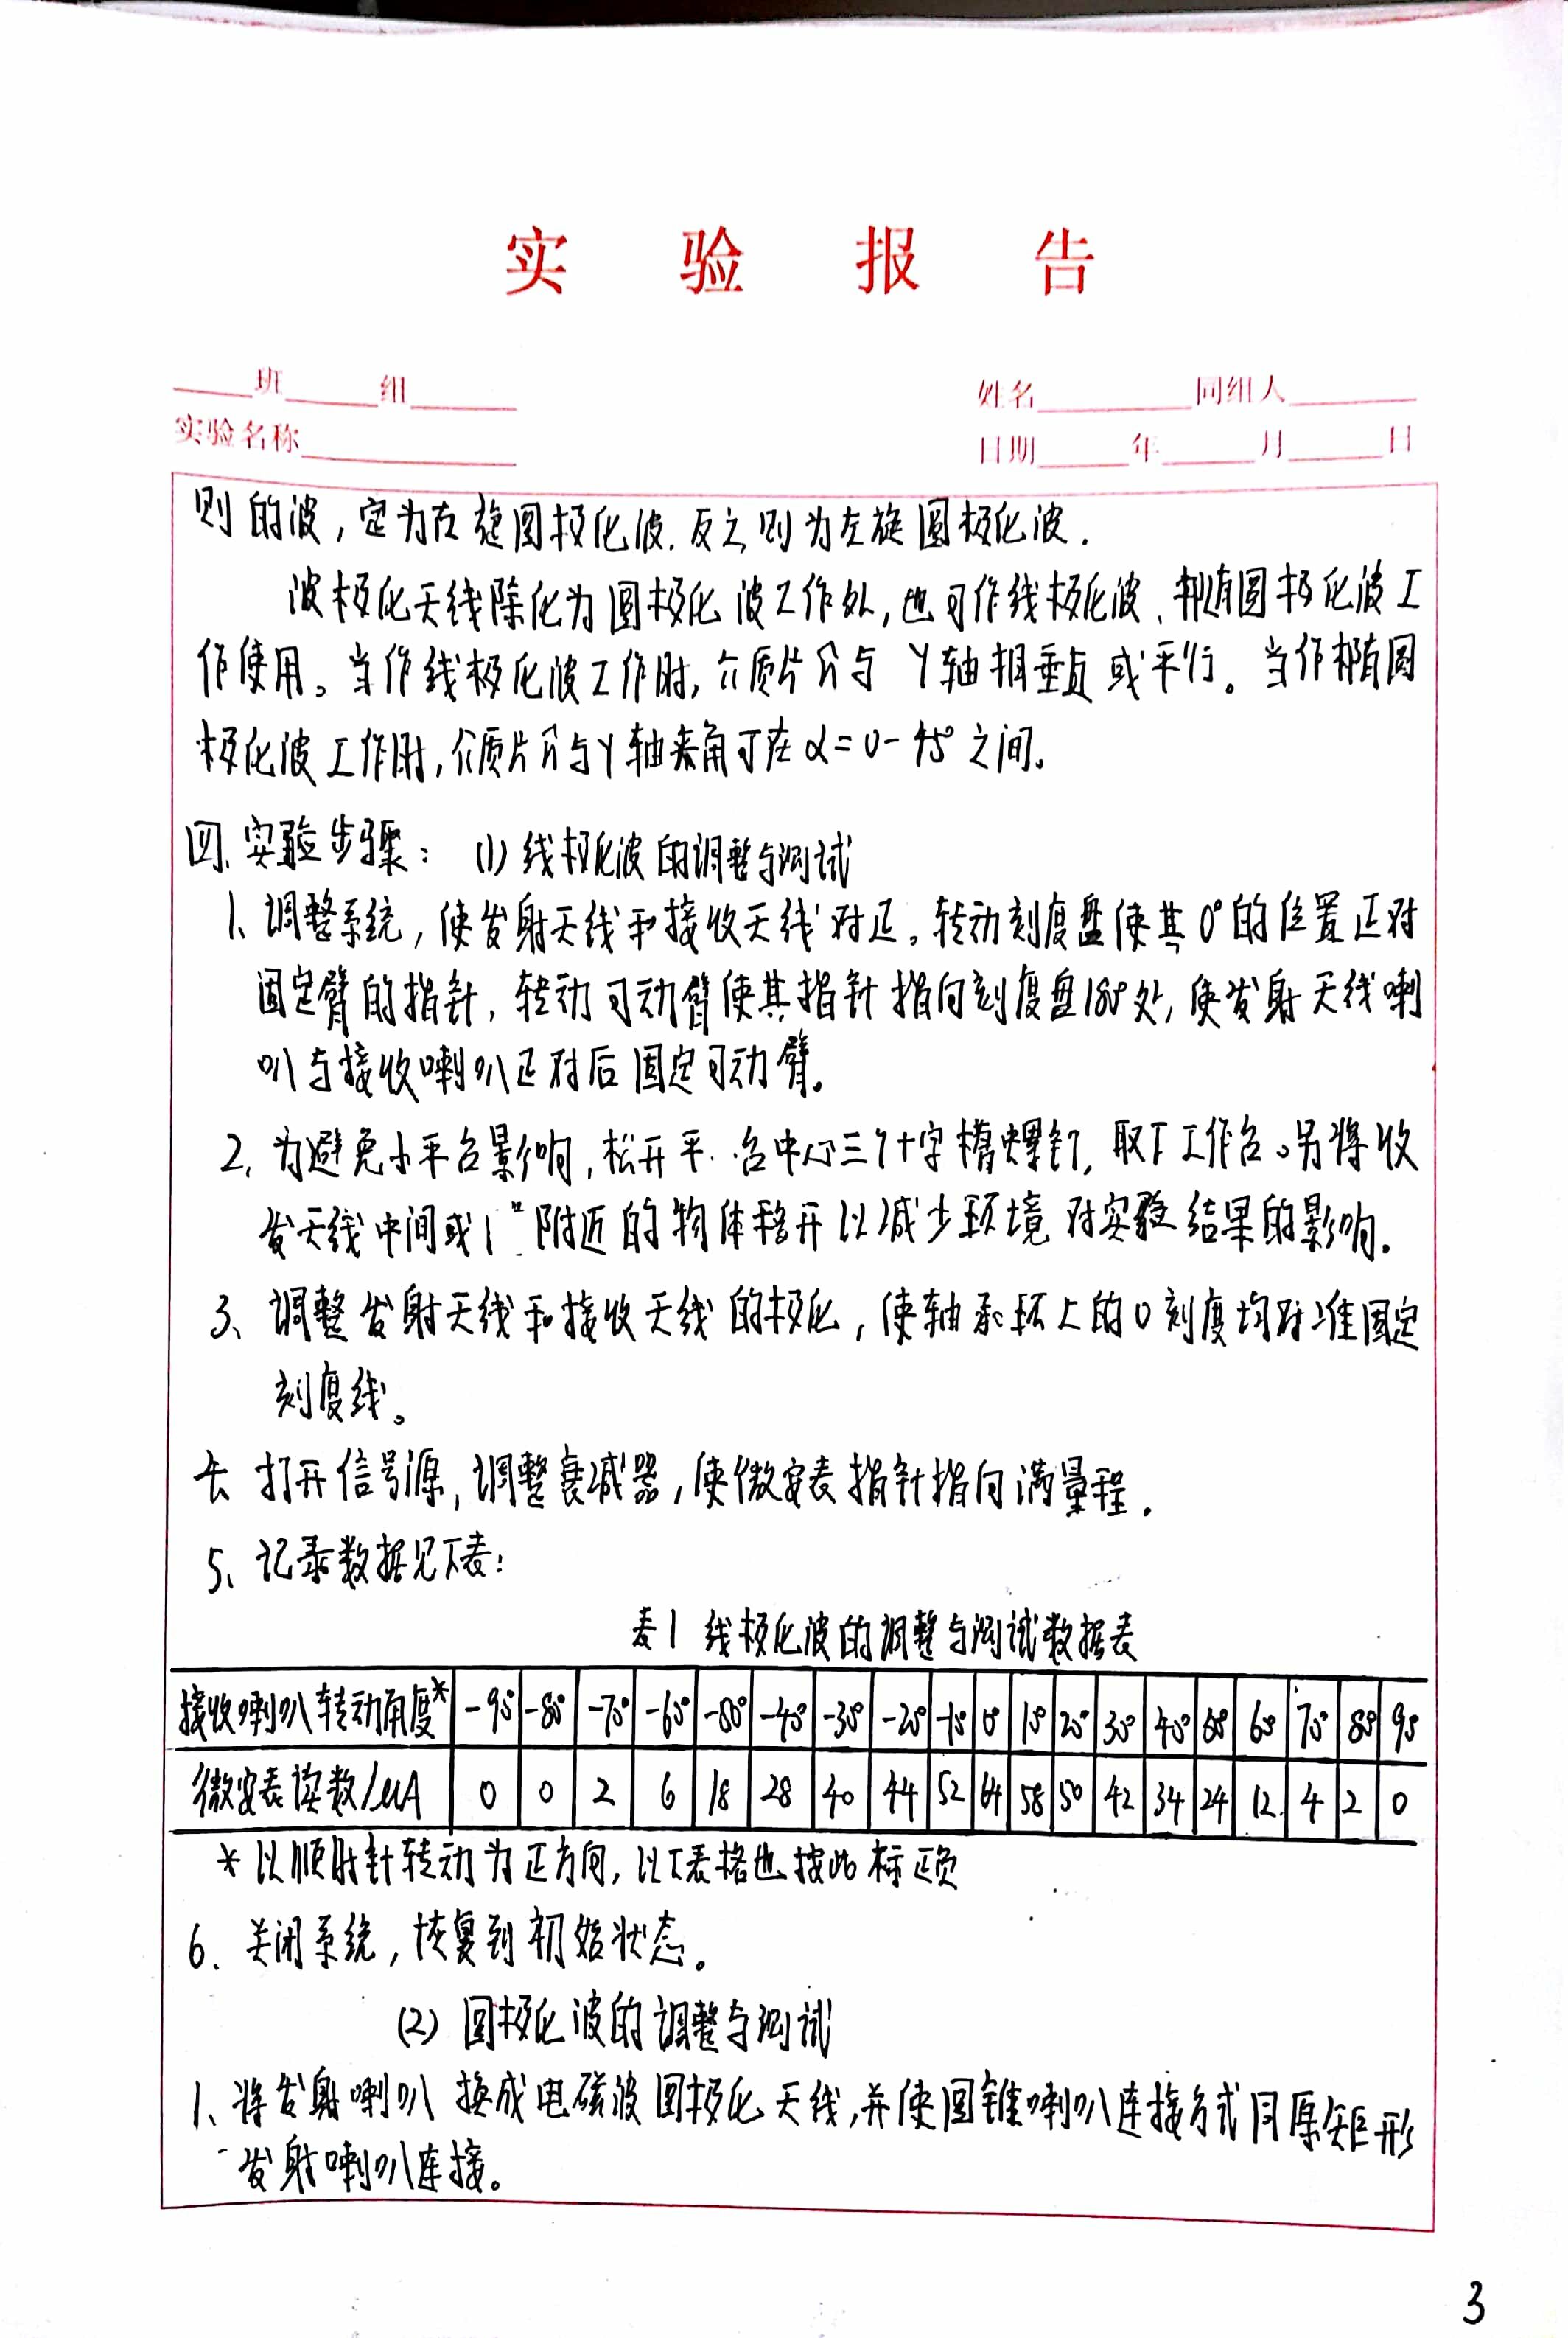 实验报告
班 组 姓名 同组人
实验名称 日期 年 月 日
则的波，定为右旋圆极化波.反之则为左旋圆极化波.
波极化天线除化为圆极化波工作外,也可作线极化波、椭圆极化波工
作使用。当作线极化波工作时,介质片介与Y轴相垂直或平行。当作椭圆
极化波工作时,介质片介与Y轴夹角可在α=0-45°之间。
四.实验步骤： (1)线极化波的调整与测试
1、调整系统，使发射天线和接收天线对正。转动刻度盘使其0°的位置正对
固定臂的指针，转动可动臂使其指针指向刻度盘180°处,使发射天线喇
叭与接收喇叭正对后固定可动臂。
2、为避免小平台影响,松开平台中心三个十字槽螺钉,取下工作台。另将收
发天线中间或附近的物体移开以减少环境对实验结果的影响.
3、调整发射天线和接收天线的极化，使轴承环上的0刻度均对准固定
刻度线。
打开信号源,调整衰减器,使微安表指针指向满量程.
5、记录数据见下表：
表1 线极化波的调整与测试数据表
接收喇叭转动角度* -90° -80° -70° -60° -50° -40° -30° -20° -10° 0° 10° 20° 30° 40° 50° 60° 70° 80° 90
微安表读数/μA 0 0 2 6 18 28 40 44 52 64 58 50 42 34 24 12 4 2 0
*以顺时针转动为正方向,以下表格也按此标正负
6、关闭系统,恢复到初始状态。
(2) 圆极化波的调整与测试
1、将发射喇叭换成电磁波圆极化天线,并使圆锥喇叭连接方式同原矩形
发射喇叭连接。
3